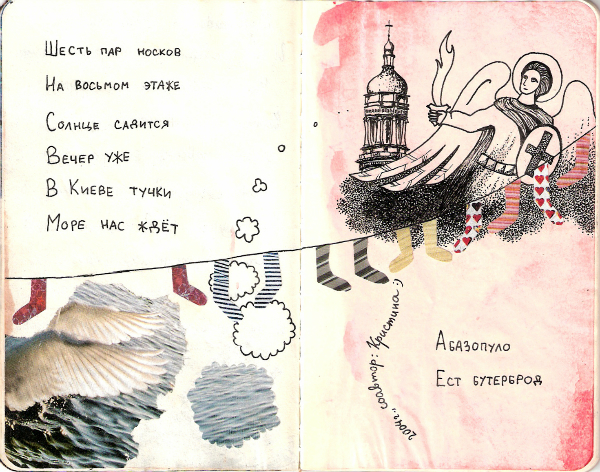 Шесть пар носков
На восьмом этаже
Солнце садится
Вечер уже
В Киеве тучки
Море нас ждёт
2004г., соавтор: Кристина :)
Абазопуло
Ест бутерброд